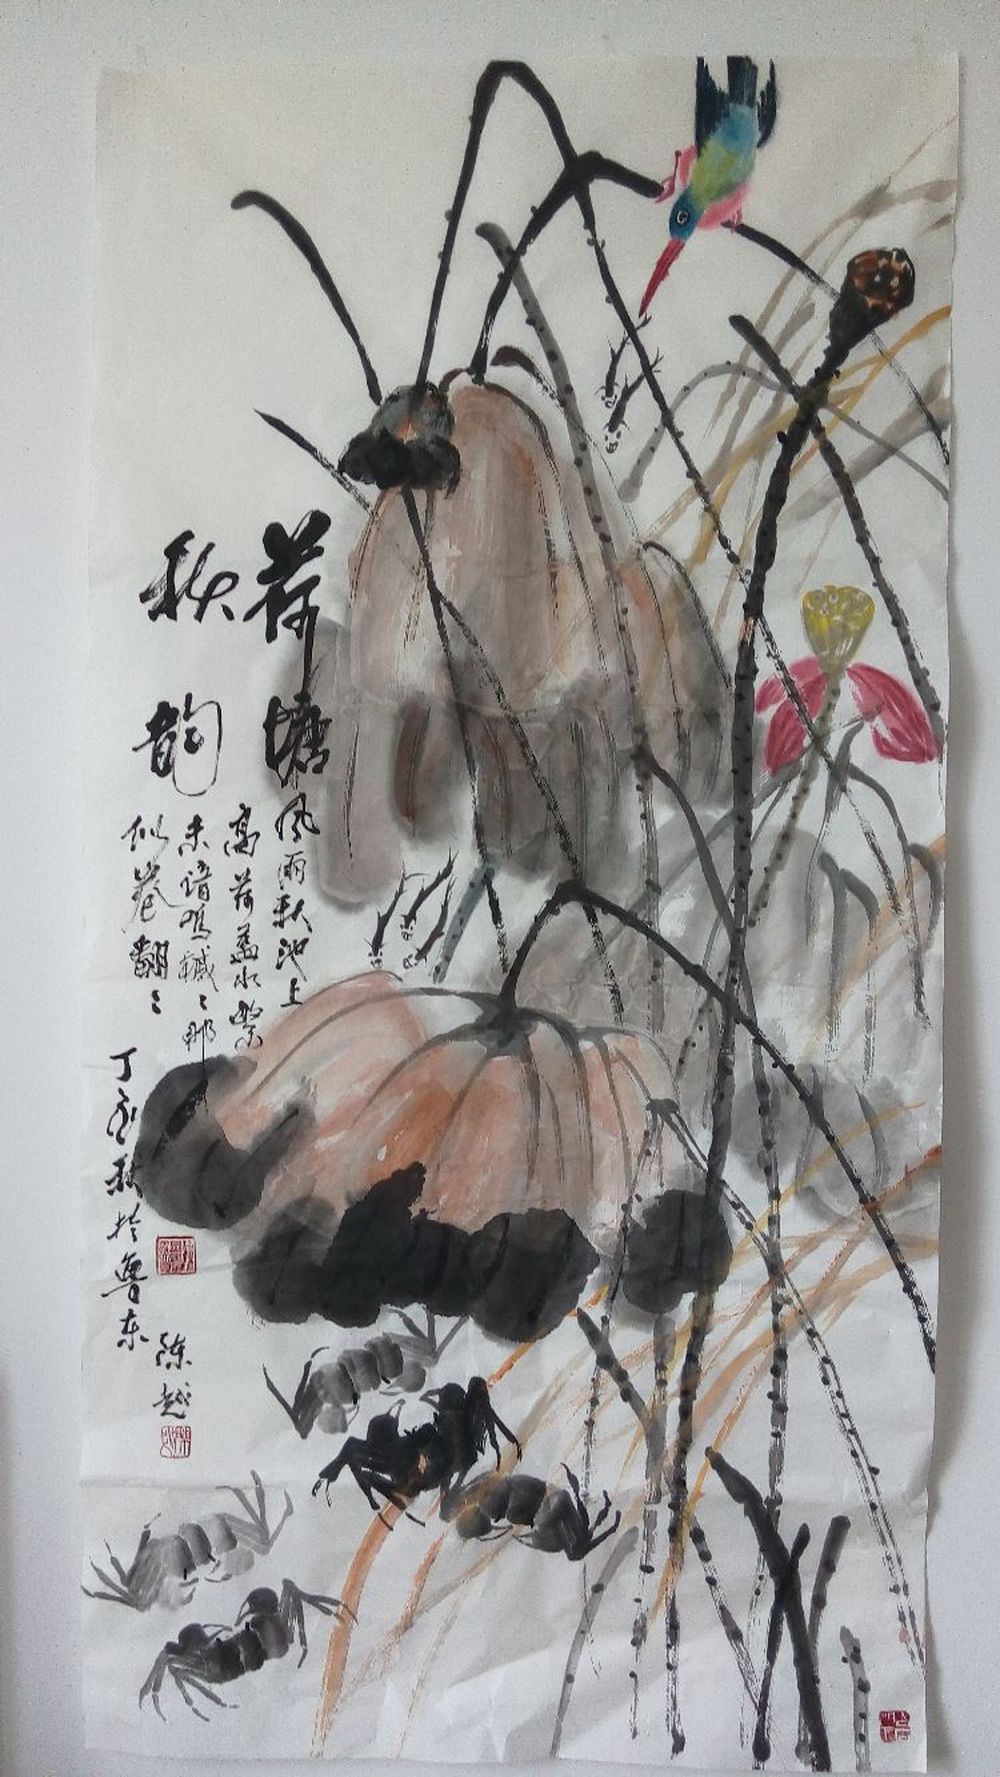 荷塘
秋韵
风雨秋池上
高荷盖水繁
未谙鸣摵々那
似卷翻々
丁酉秋於鲁东
陈越